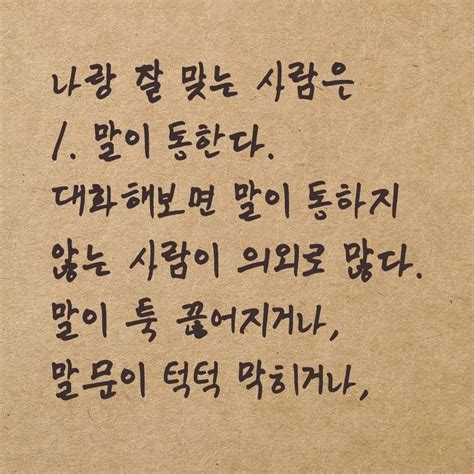 나랑 잘 맞는 사람은
1. 말이 통한다.
대화해보면 말이 통하지
않는 사람이 의외로 많다.
말이 툭 끊어지거나,
말문이 턱턱 막히거나,